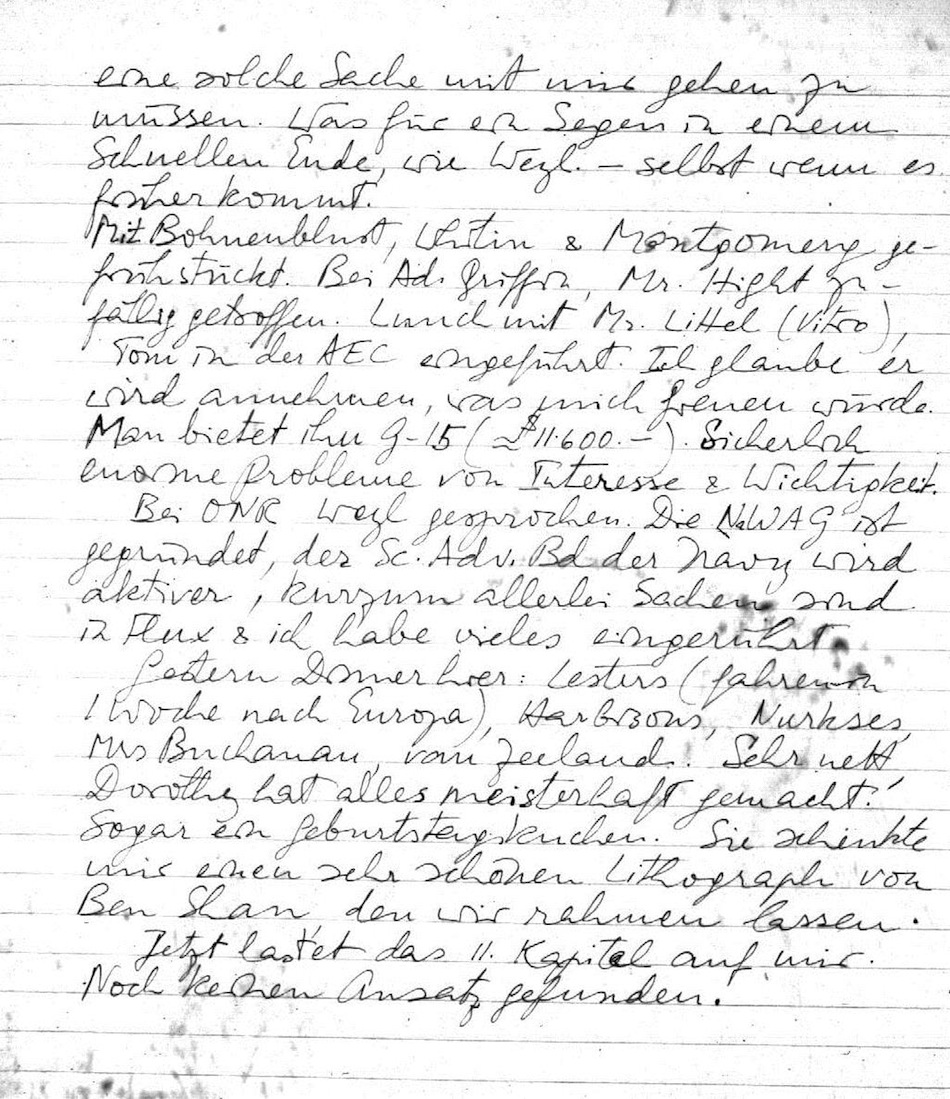 eine solche Sache mit mir gehen zu
müssen. Was für ein Segen in einem
Schnellen Ende, wie Weyl. – selbst wenn es
früher kommt.
Mit Bohnenblust, & Montgomery ge-
frühstückt. Bei Ad. Griffin, Mr. Hight zu-
fällig getroffen. Lunch mit Mr. Littel (Vitro),
Tom in der AEC eingeführt. Ich glaube er
wird annehmen, was mich freuen würde.
Man bietet ihm G-15 ($11.600.–). Sicherlich
enorme Probleme von Interesse & Wichtigkeit.
Bei ONR Weyl gesprochen. Die NaWAG ist
gegründet, der Sc. Adv. Bd der Navy wird
aktiver, kurzum allerlei Sachen sind
in Flux & ich habe vieles eingerührt.
Gestern Dinner hier: Lesters (fahren in
1 Woche nach Europa), Harbisons, Nurkses,
Mrs Buchanan, van Zeeland. Sehr nett
Dorothy hat alles meisterhaft gemacht!
Sogar ein Geburtstagskuchen. Sie schenkte
mir einen sehr schönen Lithograph von
Ben Shan den wir rahmen lassen.
Jetzt lastet das 11. Kapitel auf mir.
Noch keinen Ansatz gefunden.